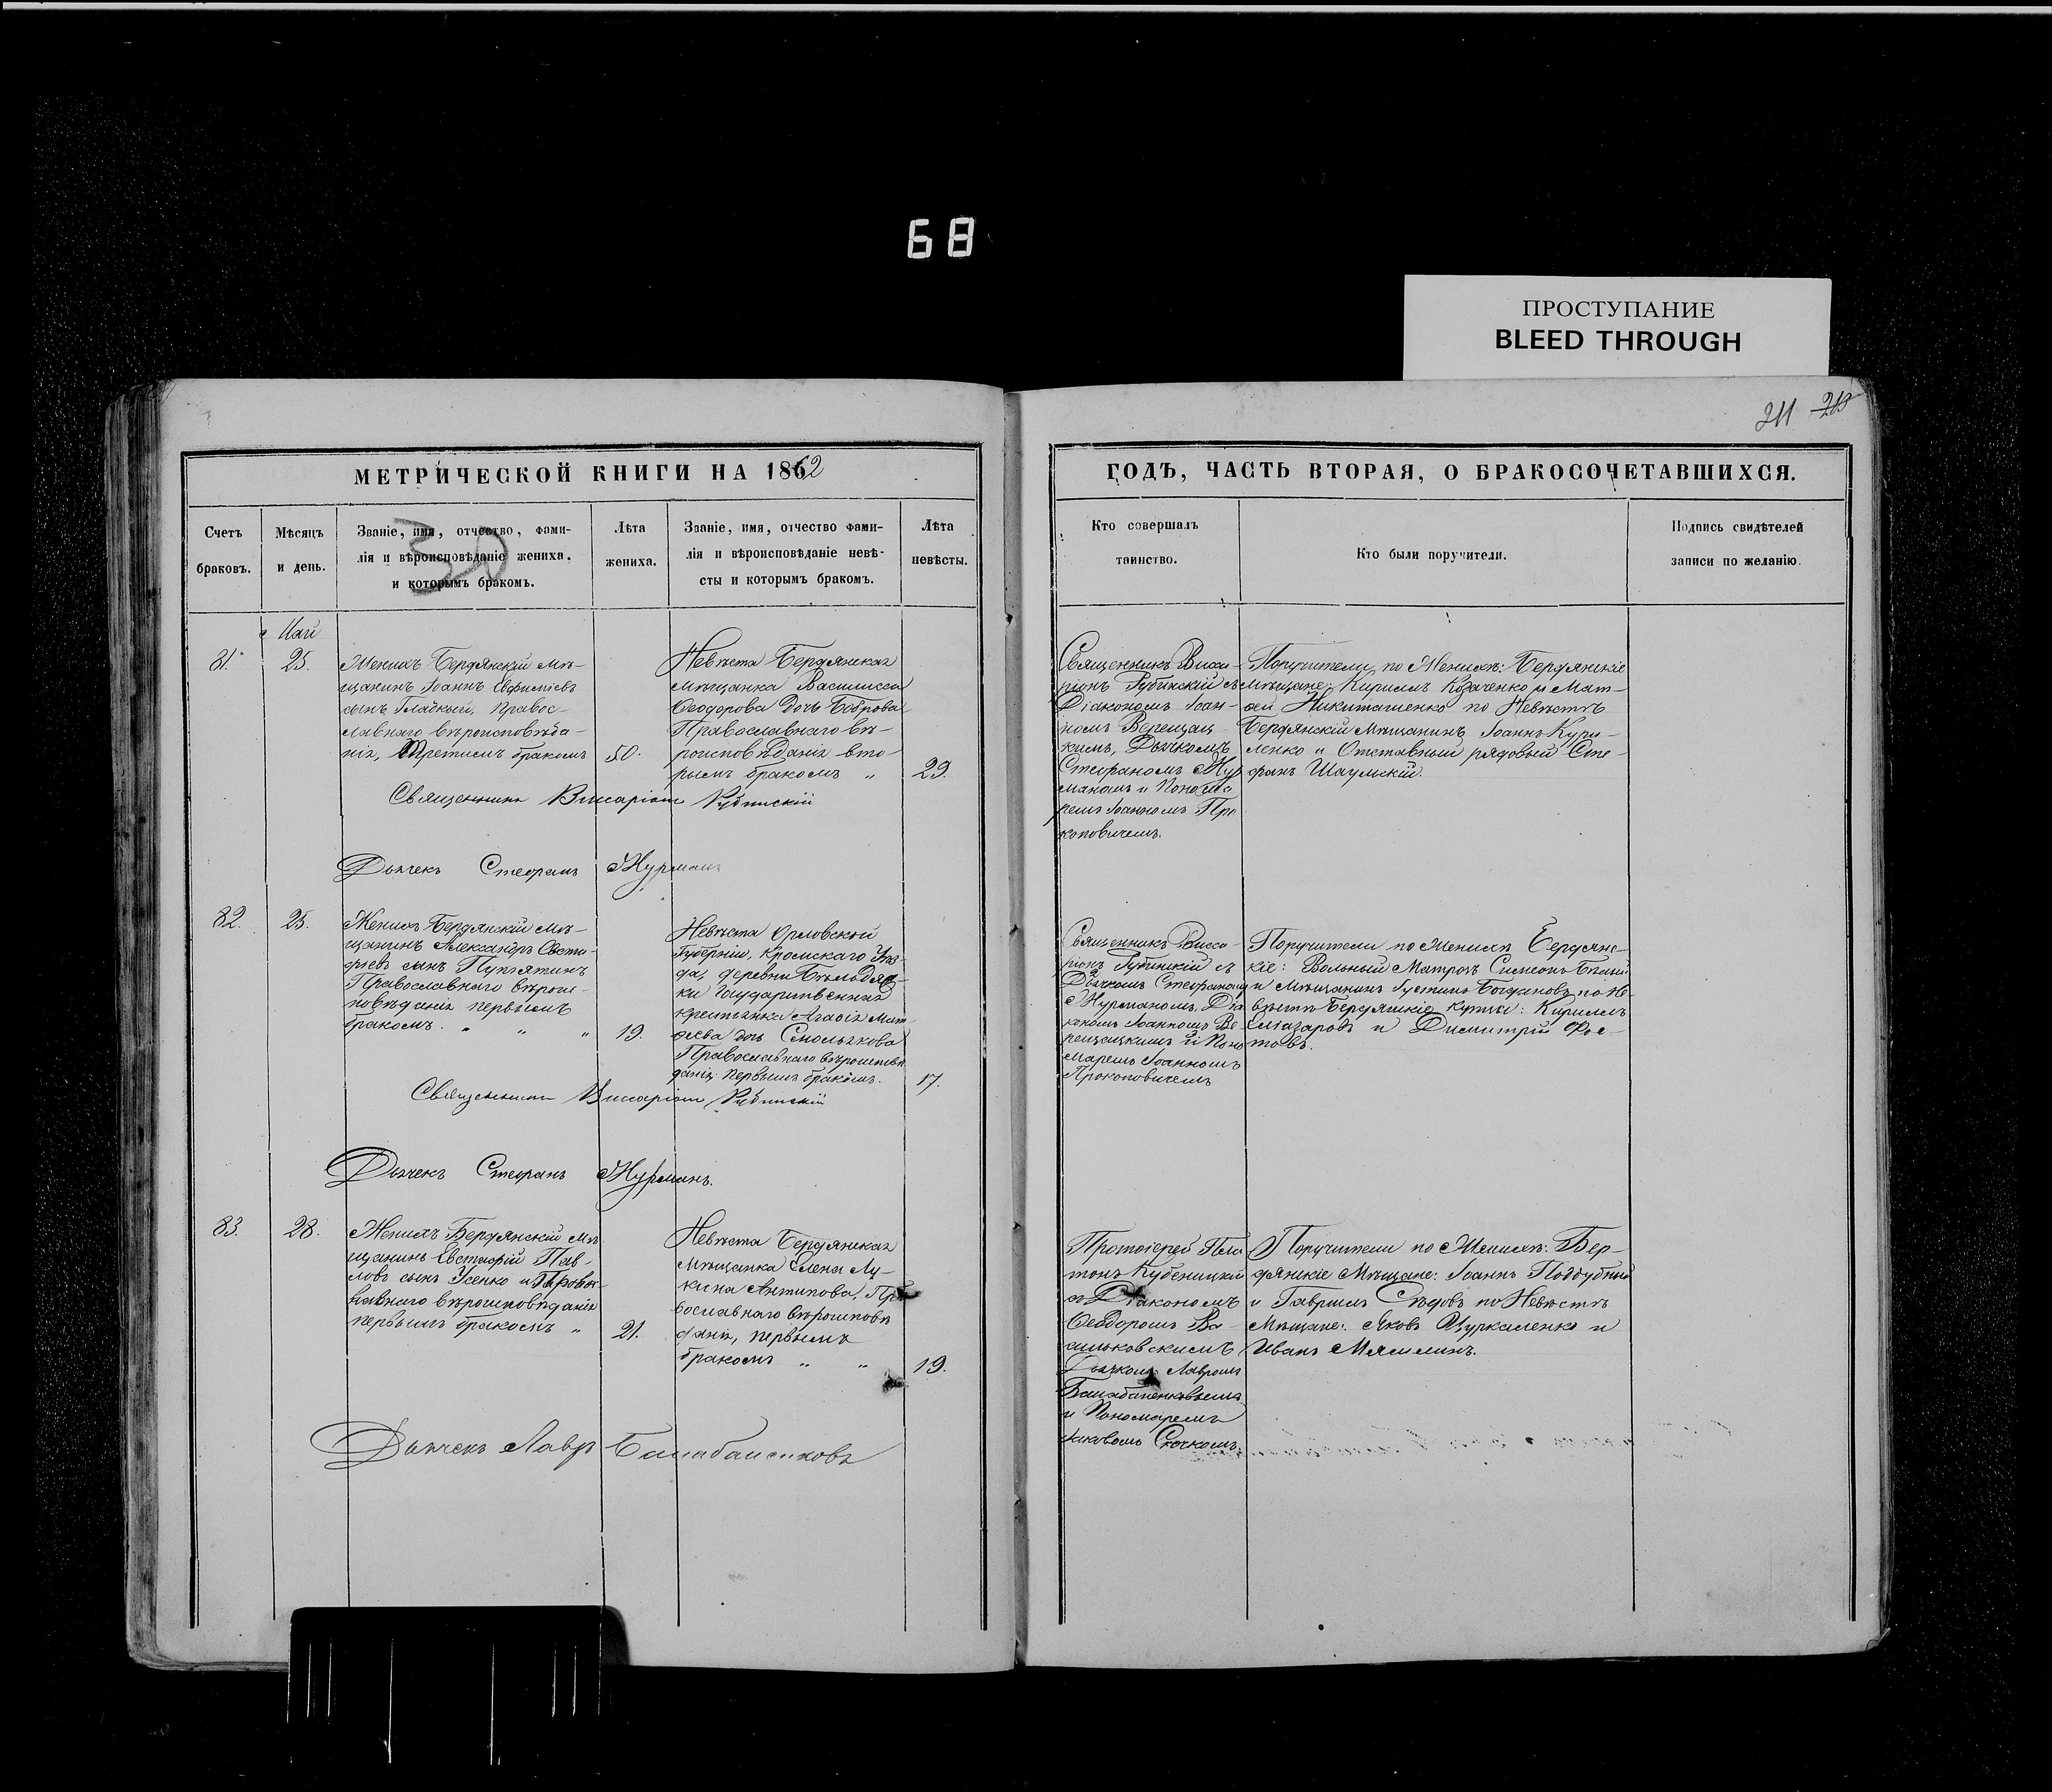 68
ПРОСТУПАНИЕ
BLEED THROUGH
211 213
МЕТРИЧЕСКОЙ КНИГИ НА 1862
ГОДЪ, ЧАСТЬ ВТОРАЯ, О БРАКОСОЧЕТАВШИХСЯ.
Счетъ
браковъ.
Мѣсяцъ
и день.
Званіе, имя, отчество, фами-
лія и вѣроисповѣданіе жениха.
и которымъ бракомъ.
30
Лѣта
жениха.
Званіе, имя, отчество фами-
лія и вѣроисповѣданіе невѣ-
сты и которымъ бракомъ.
Лѣта
невѣсты.
Кто совершалъ
таинство.
Кто были поручители.
Подпись свидѣтелей
записи по желанію.
Май
81.
25.
Женихъ Бердянскій мѣ-
щанинъ Іоаннъ Евфиміевъ
сынъ Гладкый, Правос-
лавнаго вѣроисповѣда-
нія, Третимъ бракомъ
50.
Невѣста Бердянская
Мѣщанка Василисса
Ѳеодорова дочь Боброва
Православнаго вѣ-
роисповѣданія вто-
рымъ бракомъ "
29.
Священникъ Висса-
ріонъ Рубинскій съ
Діакономъ Іоан-
номъ Верещац-
кимъ, Дьячкомъ
Стефаномъ Жур
маномъ и Понома
ремъ Іоанномъ Про
коповичемъ.
Поручители, по Женихѣ: Бердянскіе
мѣщане: Кириллъ Козаченко и Мат-
ѳей Никиташенко по Невѣстѣ
Бердянскій Мѣщанинъ Іоаннъ Кури-
ленко и Отставный рядовый Сте-
фанъ Шаумскій.
Священникъ Виссаріонъ Рубинскій
Дьячекъ Стефанъ Журманъ
82.
25.
Женихъ Бердянскій Мѣ-
щанинъ Александръ Евста-
фіевъ сынъ Путятинъ
Православнаго вѣроис-
повѣданія первымъ
бракомъ. " " "
19.
Невѣста Орловской
Губерніи, Кромскаго Уѣз-
да, деревни Бѣльдяж-
ки Государственная
крестьянка Агафія Мат-
ѳеева дочь Смольякова
Православнаго вѣроисповѣ
данія, первымъ бракомъ.
17.
Священникъ Висса-
ріонъ Рубинскій съ
Дьячкомъ Стефаномъ
Журманомъ, Діа
кономъ Іоанномъ Ве-
рещацкимъ и Поно
маремъ Іоанномъ
Прокоповичемъ
Поручители по Женихѣ Бердянс-
кіе: Вольный Матрозъ Симеонъ
и Мѣщанинъ Густинъ Богдановъ, по Не-
вѣстѣ Бердянскіе купцы: Кириллъ
Еліазаровъ и Димитрій Фіе-
товъ.
Священникъ Виссаріонъ Рубинскій
Дьячекъ Стефанъ Журманъ.
83.
28.
Женихъ Бердянскій Мѣ
щанинъ Евстафій Пав-
ловъ сынъ Усенко Правос-
лавнаго вѣроисповѣданія
первымъ бракомъ "
21.
Невѣста Бердянская
Мѣщанка Елена Лу-
кина Антипова, Пра
вославнаго вѣроисповѣ
данія, первымъ
бракомъ " "
19.
Протоіерей Пла
тонъ Кубеницкій
съ Діакономъ
Ѳеодоромъ Ва-
сильковскимъ
Дьячкомъ Лавромъ
Балабаненковымъ
и Пономаремъ
Іаковомъ Сочкомъ.
Поручители по Женихѣ: Бер-
дянскіе Мѣщане: Іоаннъ Поддубный
и Гавріилъ Сѣдовъ по Невѣстѣ
Мѣщане: Яковъ Цуркаленко и
Иванъ Мясилинъ.
Дьячекъ Лавръ Балабаненковъ